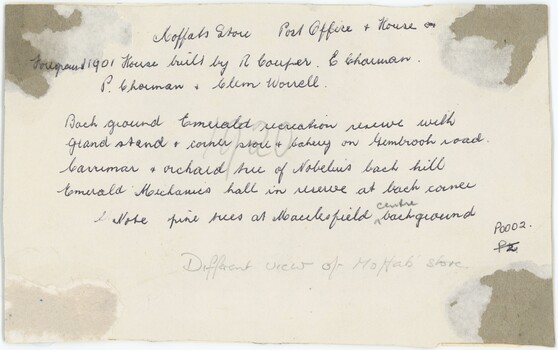 Moffats Store Post Office + House
Foreground 1901 House built by R Couper. E Charman.
P. Charman + Clem Worrell.
Back ground Emerald recreation reserve with
grand stand + corner store + bakery on Gembrook road.
1920
Carrimar + orchard tree of Nobelius back hill
Emerald Mechanics hall in reserve at back corner
Note pine trees at Macclesfield centre background
P0002.
P2
Different view of Moffats store